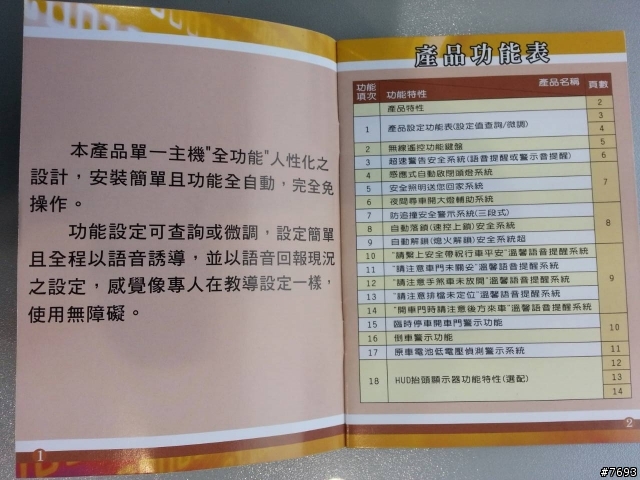 本產品單一主機"全功能"人性化之
設計，安裝簡單且功能全自動，完全免
操作。
功能設定可查詢或微調，設定簡單
且全程以語音誘導，並以語音回報現況
之設定，感覺像專人在教導設定一樣，
使用無障礙。
1
產品功能表
功能項次 功能特性 產品名稱 頁數
產品特性 2
3
1 產品設定功能表(設定值查詢/微調) 4
5
2 無線遙控功能鍵盤
3 超速警告安全系統(語音提醒或警示音提醒) 6
4 感應式自動啟閉頭燈系統
5 安全照明送您回家系統 7
6 夜間尋車開大燈輔助系統
7 防追撞安全警示系統(三段式)
8 自動落鎖(速控上鎖)安全系統 8
9 自動解鎖(熄火解鎖)安全系統超
10 "請繫上安全帶祝行車平安"溫馨語音提醒系統
11 "請注意車門未關妥"溫馨語音提醒系統
12 "請注意手煞車未放開"溫馨語音提醒系統 9
13 "請注意排檔未定位"溫馨語音提醒系統
14 "開車門時請注意後方來車"溫馨語音提醒系統
15 臨時停車開車門警示功能 10
16 倒車警示功能
17 原車電池低電壓偵測警示系統 11
12
18 HUD抬頭顯示器功能特性(選配) 13
14
2
#7693